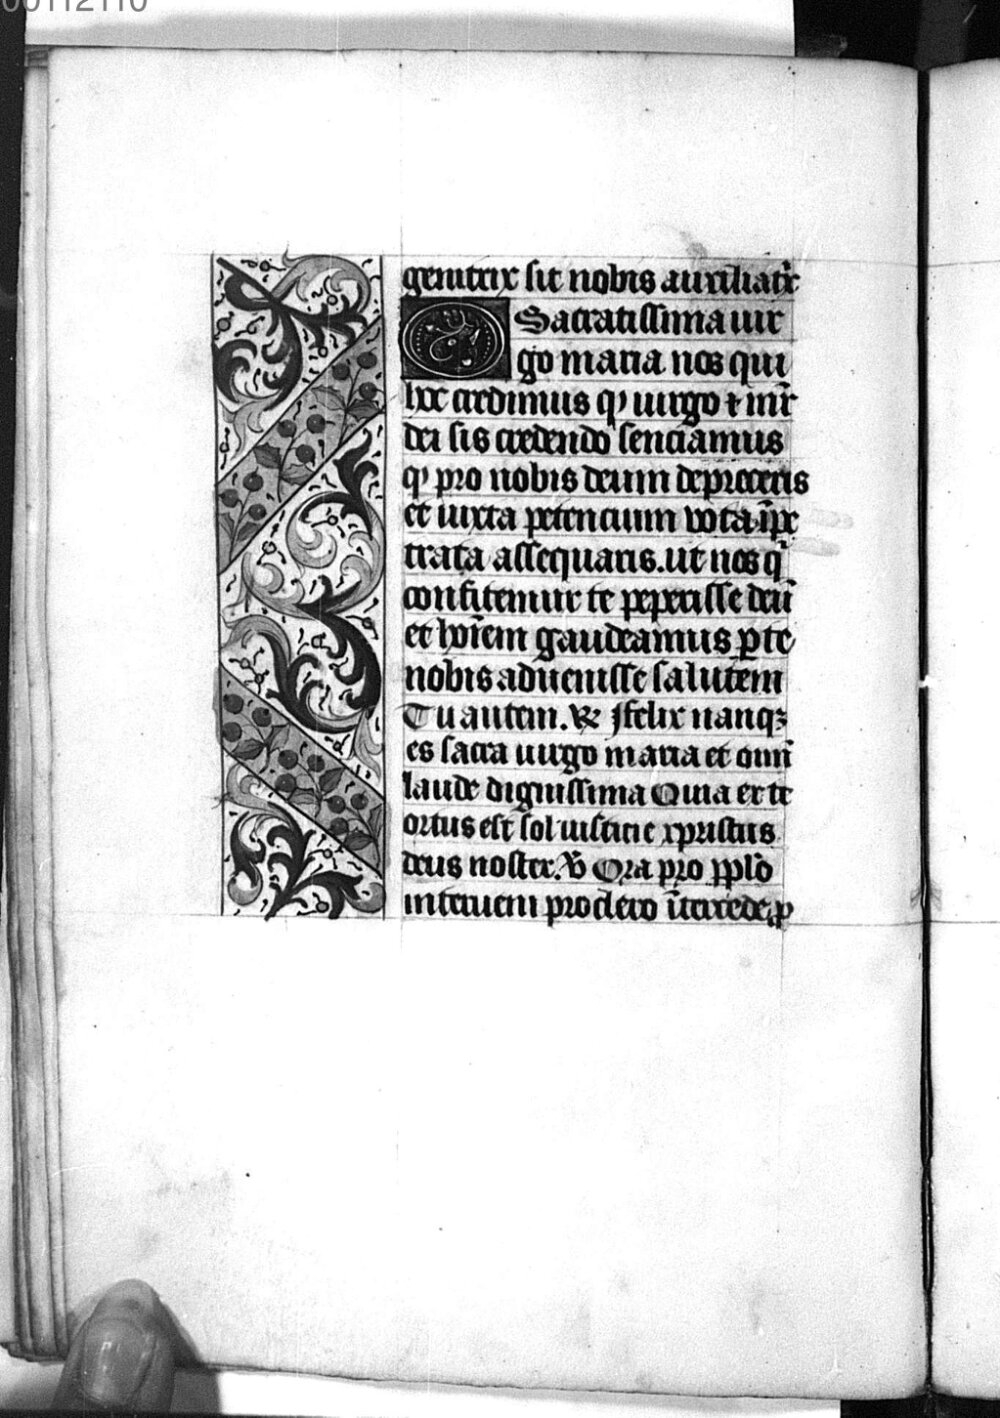 00112110
genitrix sit nobis auxiliatr̄
Sacratissima uir
go maria nos qui
hec credimus q̄ uirgo ⁊ mr̄
dei sis credendo senciamus
q̄ pro nobis deum depreceris
et iuxta petencium vota īpe
trata assequaris. ut nos q̄
confitemur te peperisse deū
et hoīem gaudeamus ꝑ te
nobis aduenisse salutem
Tu autem. ℟ Felix nanqꝫ
es sacra uirgo maria et omī
laude dignissima Quia ex te
ortus est sol iusticie xpristus
deus noster. ℣ Ora pro pplō
interueni pro clero ītercede ꝓ